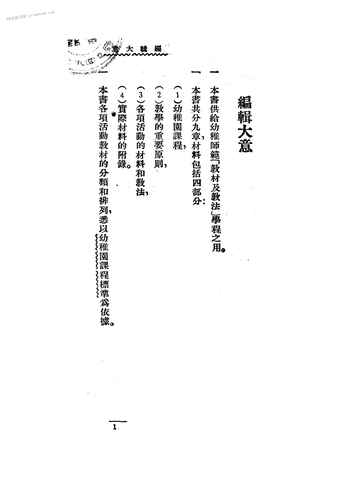 編輯大意
編輯大意
一 本書供給幼稚師範「教材及教法」學程之用。
一 本書共分九章材料包括四部分：
(1)幼稚園課程，
(2)教學的重要原則，
(3)各項活動的材料和教法，
(4)實際材料的附錄。
一 本書各項活動教材的分類和排列，悉以幼稚園課程標準爲依據。
1